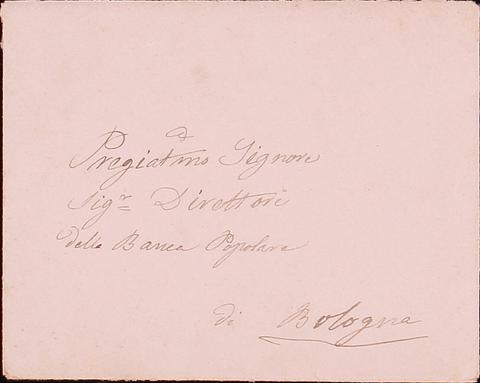 Al
Pregiatmo Signore
Sigr Direttore
della Banca Popolare
di Bologna